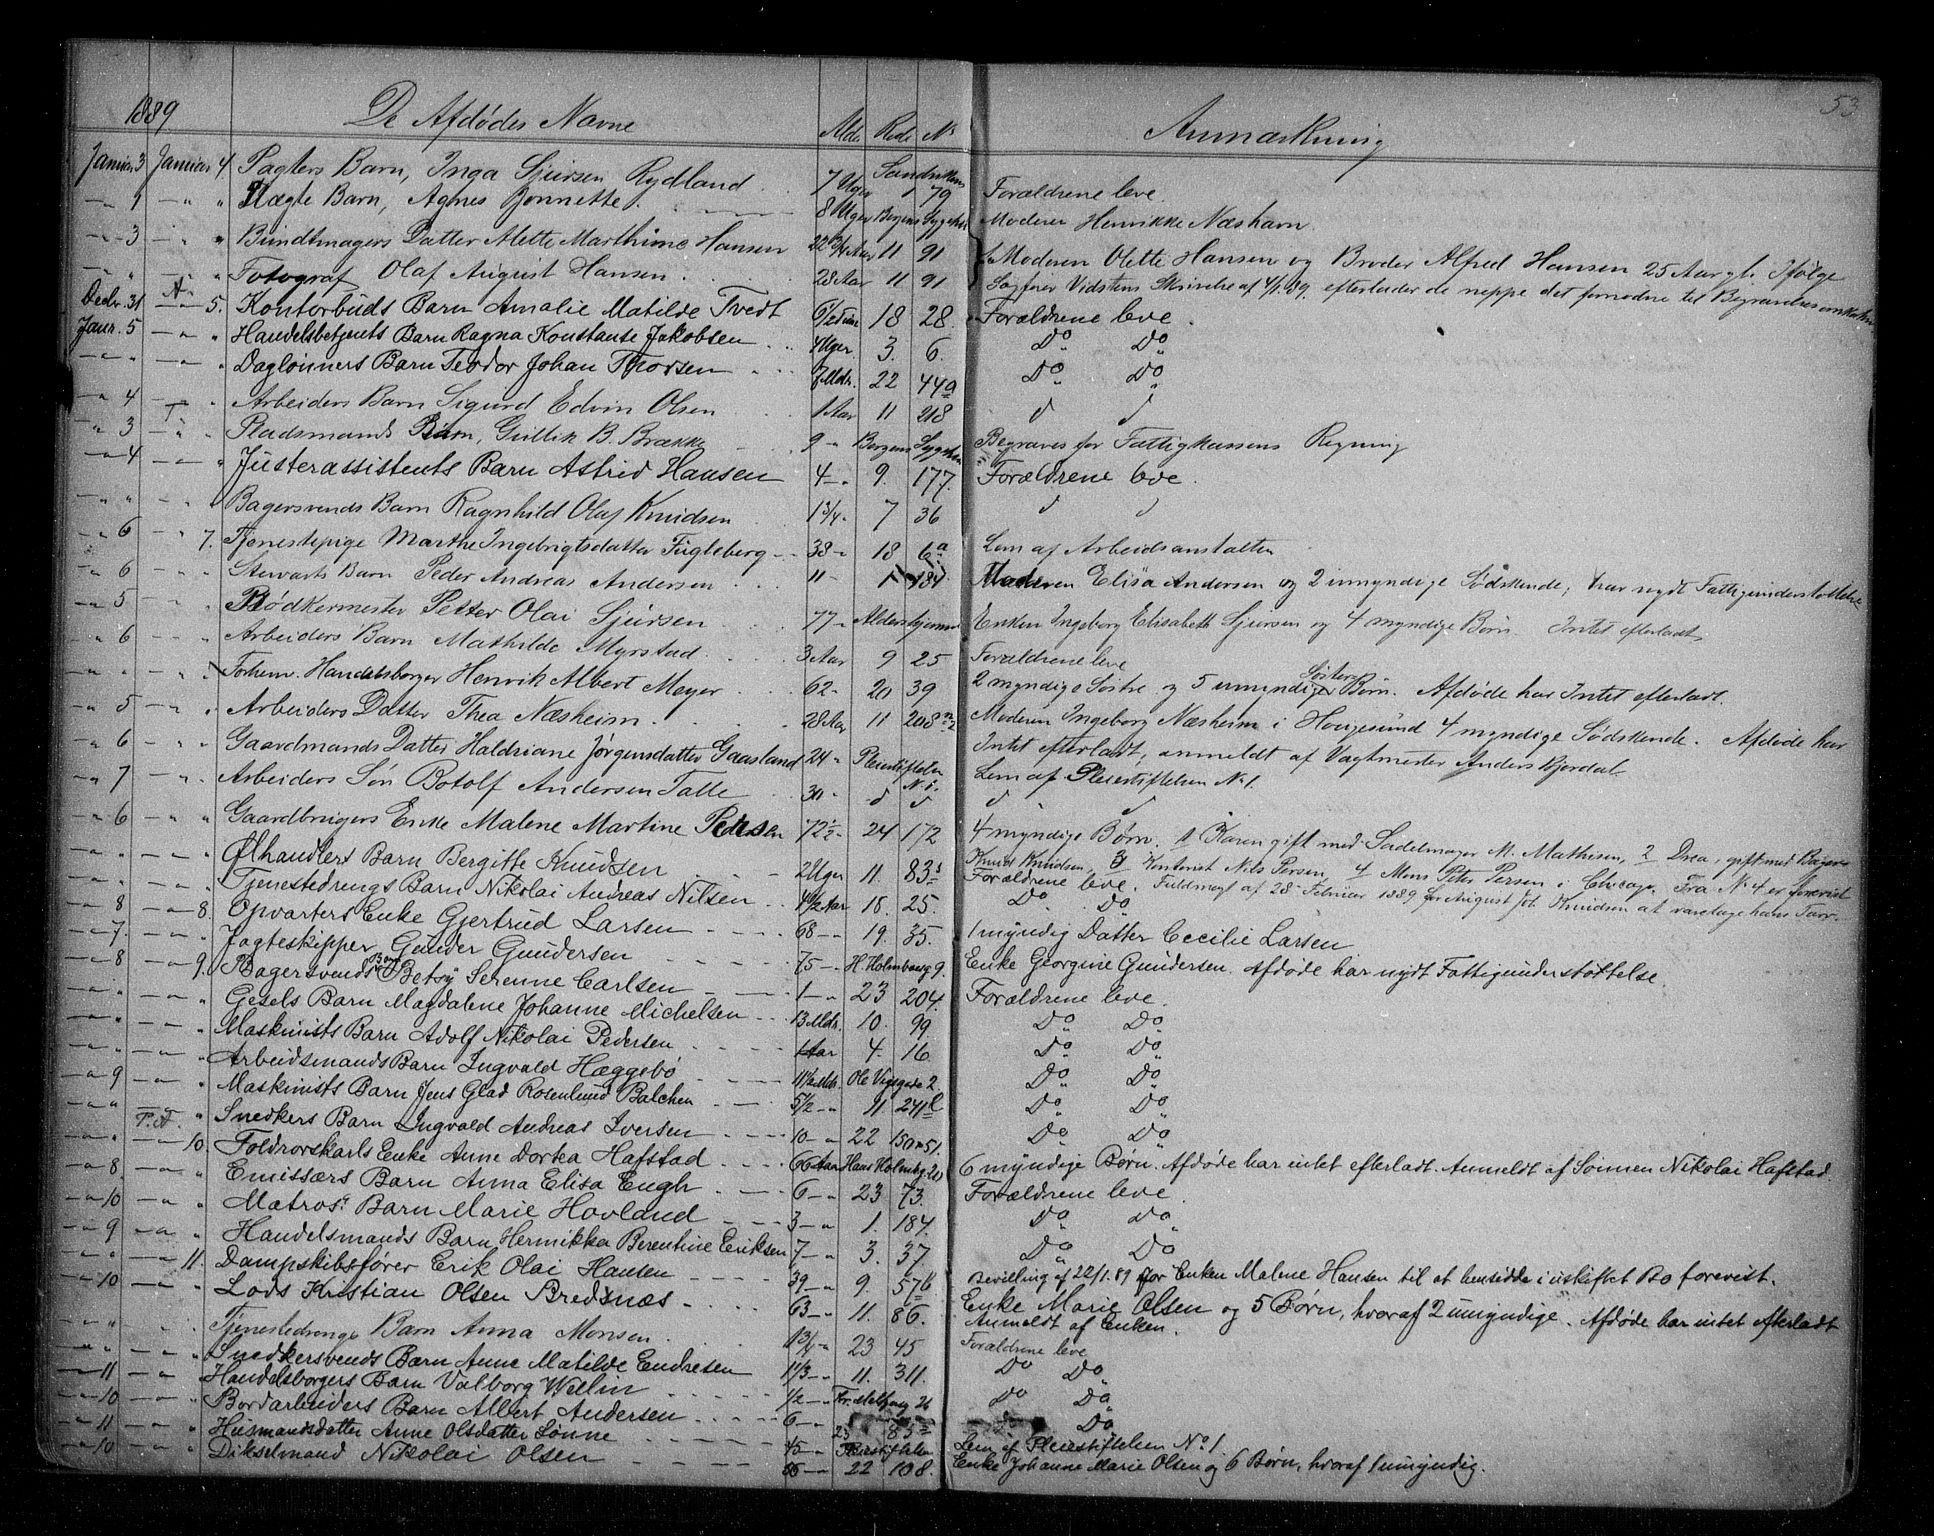 53
1889 De Afdødes Navne Alder Rode No Anmærkning
Januar 3 Januar 4 Pagters Barn, Inga Sjursen Rydland 7 Uger Sandviken 1 79 Forældrene leve.
" 1 " " Uægte Barn, Agnes Jonnette. 8 Uger Bergens Sygehus Moderen Henrikke Næshavn.
" 3 " " Bundtmagers Datter Alette Marthine Hansen 22 Aar 11 91 Moderen Olette Hansen og Broder Alfred Hansen 25 Aar gl. Ifølge
" " " " Fotograf Olaf August Hansen. 28 Aar 11 91 Sagfører Vidstens Skrivelse af 4/1 89. efterlader de neppe det fornødne til
Decbr. 31 " 5. Kontorbuds Barn Amalie Matilde Tvedt 6 1/2 Time 18 28. Forældrene leve.
Janr. 5 " " Handelsbetjents Barn Ragna Konstanse Jakobsen 4 Uger 3. 6. Do Do
" " " Dagløners Barn Teodor Johan Thorsen 7 Mdr. 22 449 Do Do
" 4 " " Arbeiders Barn Sigurd Edvin Olsen 1 Aar 11 218 d d
" 3 T " Pladsmands Barn, Gullik B. Brække 9 " Bergens Sygehus Begraves for Fattigkassens Regning
" 4 " " Justerassistents Barn Astrid Hansen 4 " 9. 177. Forældrene leve.
" " " " Bagersvends Barn Ragnhild Olaf Knudsen 1 3/4 " 7 36 d d
" 6 " 7. Tjenestepige Marthe Ingebrigtsdatter Fugleberg 38 " 18 6a Lem af Arbeidsanstalten
" 6 " " Stewarts Barn Peder Andreas Andersen 11 " 1 184 Moderen Elisa Andersen og 2 umyndige Sødskende, har nydt Fattigunderstøttelse
" 5 " " Bødkermester Petter Olai Sjursen 77 " Aldershjemmet Enken Ingeborg Elisabeth Sjursen og 4 myndige Børn. Intet efterladt
" 6 " " Arbeiders Barn Mathilde Myrstad. 3 Aar 9 25 Forældrene leve
" " " " Forhenv. Handelsborger Henrik Albert Meyer 62 " 20 39 2 myndige Søstre og 5 umyndige Søsters Børn. Afdøde har Intet efterladt.
" 5 " " Arbeiders Datter Thea Næsheim. 28 Aar 11 208 Moderen Ingeborg Næsheim i Haugesund 4 myndige Sødskende. Afdøde har
" 6 " " Gaardmands Datter Haldriane Jørgensdatter Gaasland 24 " Pleiestiftelsen No 1. Intet efterladt, anmeldt af Vagtmester Anders Bjordal.
" 7 " " Arbeiders Søn Botolf Andersen Talle 30 " d d Lem af Pleiestiftelsen No 1.
d d
" 6 " " Gaardbrugers Enke Malene Martine Persen 72 1/2 " 24 172 4 myndige Børn. 1 Karen gift med Sadelmager M. Mathisen, 2 Drea, gift med Bager
" " " " Ølhandlers Barn Bergitte Knudsen 2 Uger 11. 83 Knud Knudsen, 3 Kontorist Nils Persen, 4 Mons Peter Persen i Chicago. Fra No 4 er forevist
" " " " Tjenestedrengs Barn Nikolai Andreas Nilsen 4 1/2 Aar 18. 25. Forældrene leve. Fuldmagt af 28 Februar 1889 for August Joh. Knudsen at varetage hans Tarv.
Do Do
" 8 " 8. Opvarters Enke Gjertrud Larsen 68 " 19. 35. 1 myndig Datter Cecilie Larsen
" 7. " " Jagteskipper Gunder Gundersen 75 " H. Holmboeg 9. Enke Georgine Gundersen. Afdøde har nydt Fattigunderstøttelse.
" 8 " 9. Bagersvends Barn Betsy Serenne Carlsen 1 " 23 204. Forældrene leve.
" " " " Gesels Barn Magdalene Johanne Michelsen 13 Mdr. 10. 99 Do Do
" " " " Maskinists Barn Adolf Nikolai Pedersen 1 Aar 4. 16. Do Do
" " " " Arbeidsmands Barn Ingvald Hæggebø 11 1/2 Mdr. Ole Vigsgade 2. Do Do
" 9 " " Maskinists Barn Jens Glad Rosenlund Balchen 5 1/2 " 11 241 Do Do
" " P.T. " Snedkers Barn Ingvald Andreas Iversen 10 " 22 150 " 51. Do Do
" " " 10. Foldrorskarls Enke Anne Dortea Hafstad 66 Aar Hans Holmbg. 20 6 myndige Børn. Afdøde har intet efterladt. Anmeldt af Sønnen Nikolai Hafstad
" 8. " " Emissærs Barn Anna Elisa Engh 6 " 23 73. Forældrene leve.
" 10 " " Matros. Barn Marie Hovland 3 " 1. 184. Do Do
" 9 " " Handelsmands Barn Hermikka Berentine Eriksen 7 " 3. 37. Do Do
" " " 11. Dampskibsfører Erik Olai Hansen 39 " 9. 57b Bevilling af 22/1. 89 for Enken Malene Hansen til at hensidde i uskiftet Bo forevist.
" 10 " " Lods Kristian Olsen Bredsnæs 63 " 11. 86. Enke Marie Olsen og 5 Børn, hvoraf 2 umyndige. Afdøde har intet efterladt
Anmeldt af Enken.
" " " " Tjenestedrengs Barn Anna Monsen. 1 3/4 " 23 45 Forældrene leve
" " " " Snedkersvends Barn Anne Matilde Endresen 1 1/3 " 11. 311. Do Do
" 11 " " Handelsborgers Barn Valborg Wellin 1/2 " Fr. Meltzersg 26 Do Do
" 10 " " Bordarbeiders Barn Albert Andersen 6 " 23 85 Do Do
" 11 " " Husmandsdatter Anne Olsdatter Sønne 45 " Pleiestiftelsen Lem af Pleiestiftelsen No 1.
" 10 " " Dikselmand Nikolai Olsen 56 " 22 108. Enke Johanne Marie Olsen og 6 Børn, hvoraf 1 umyndig.